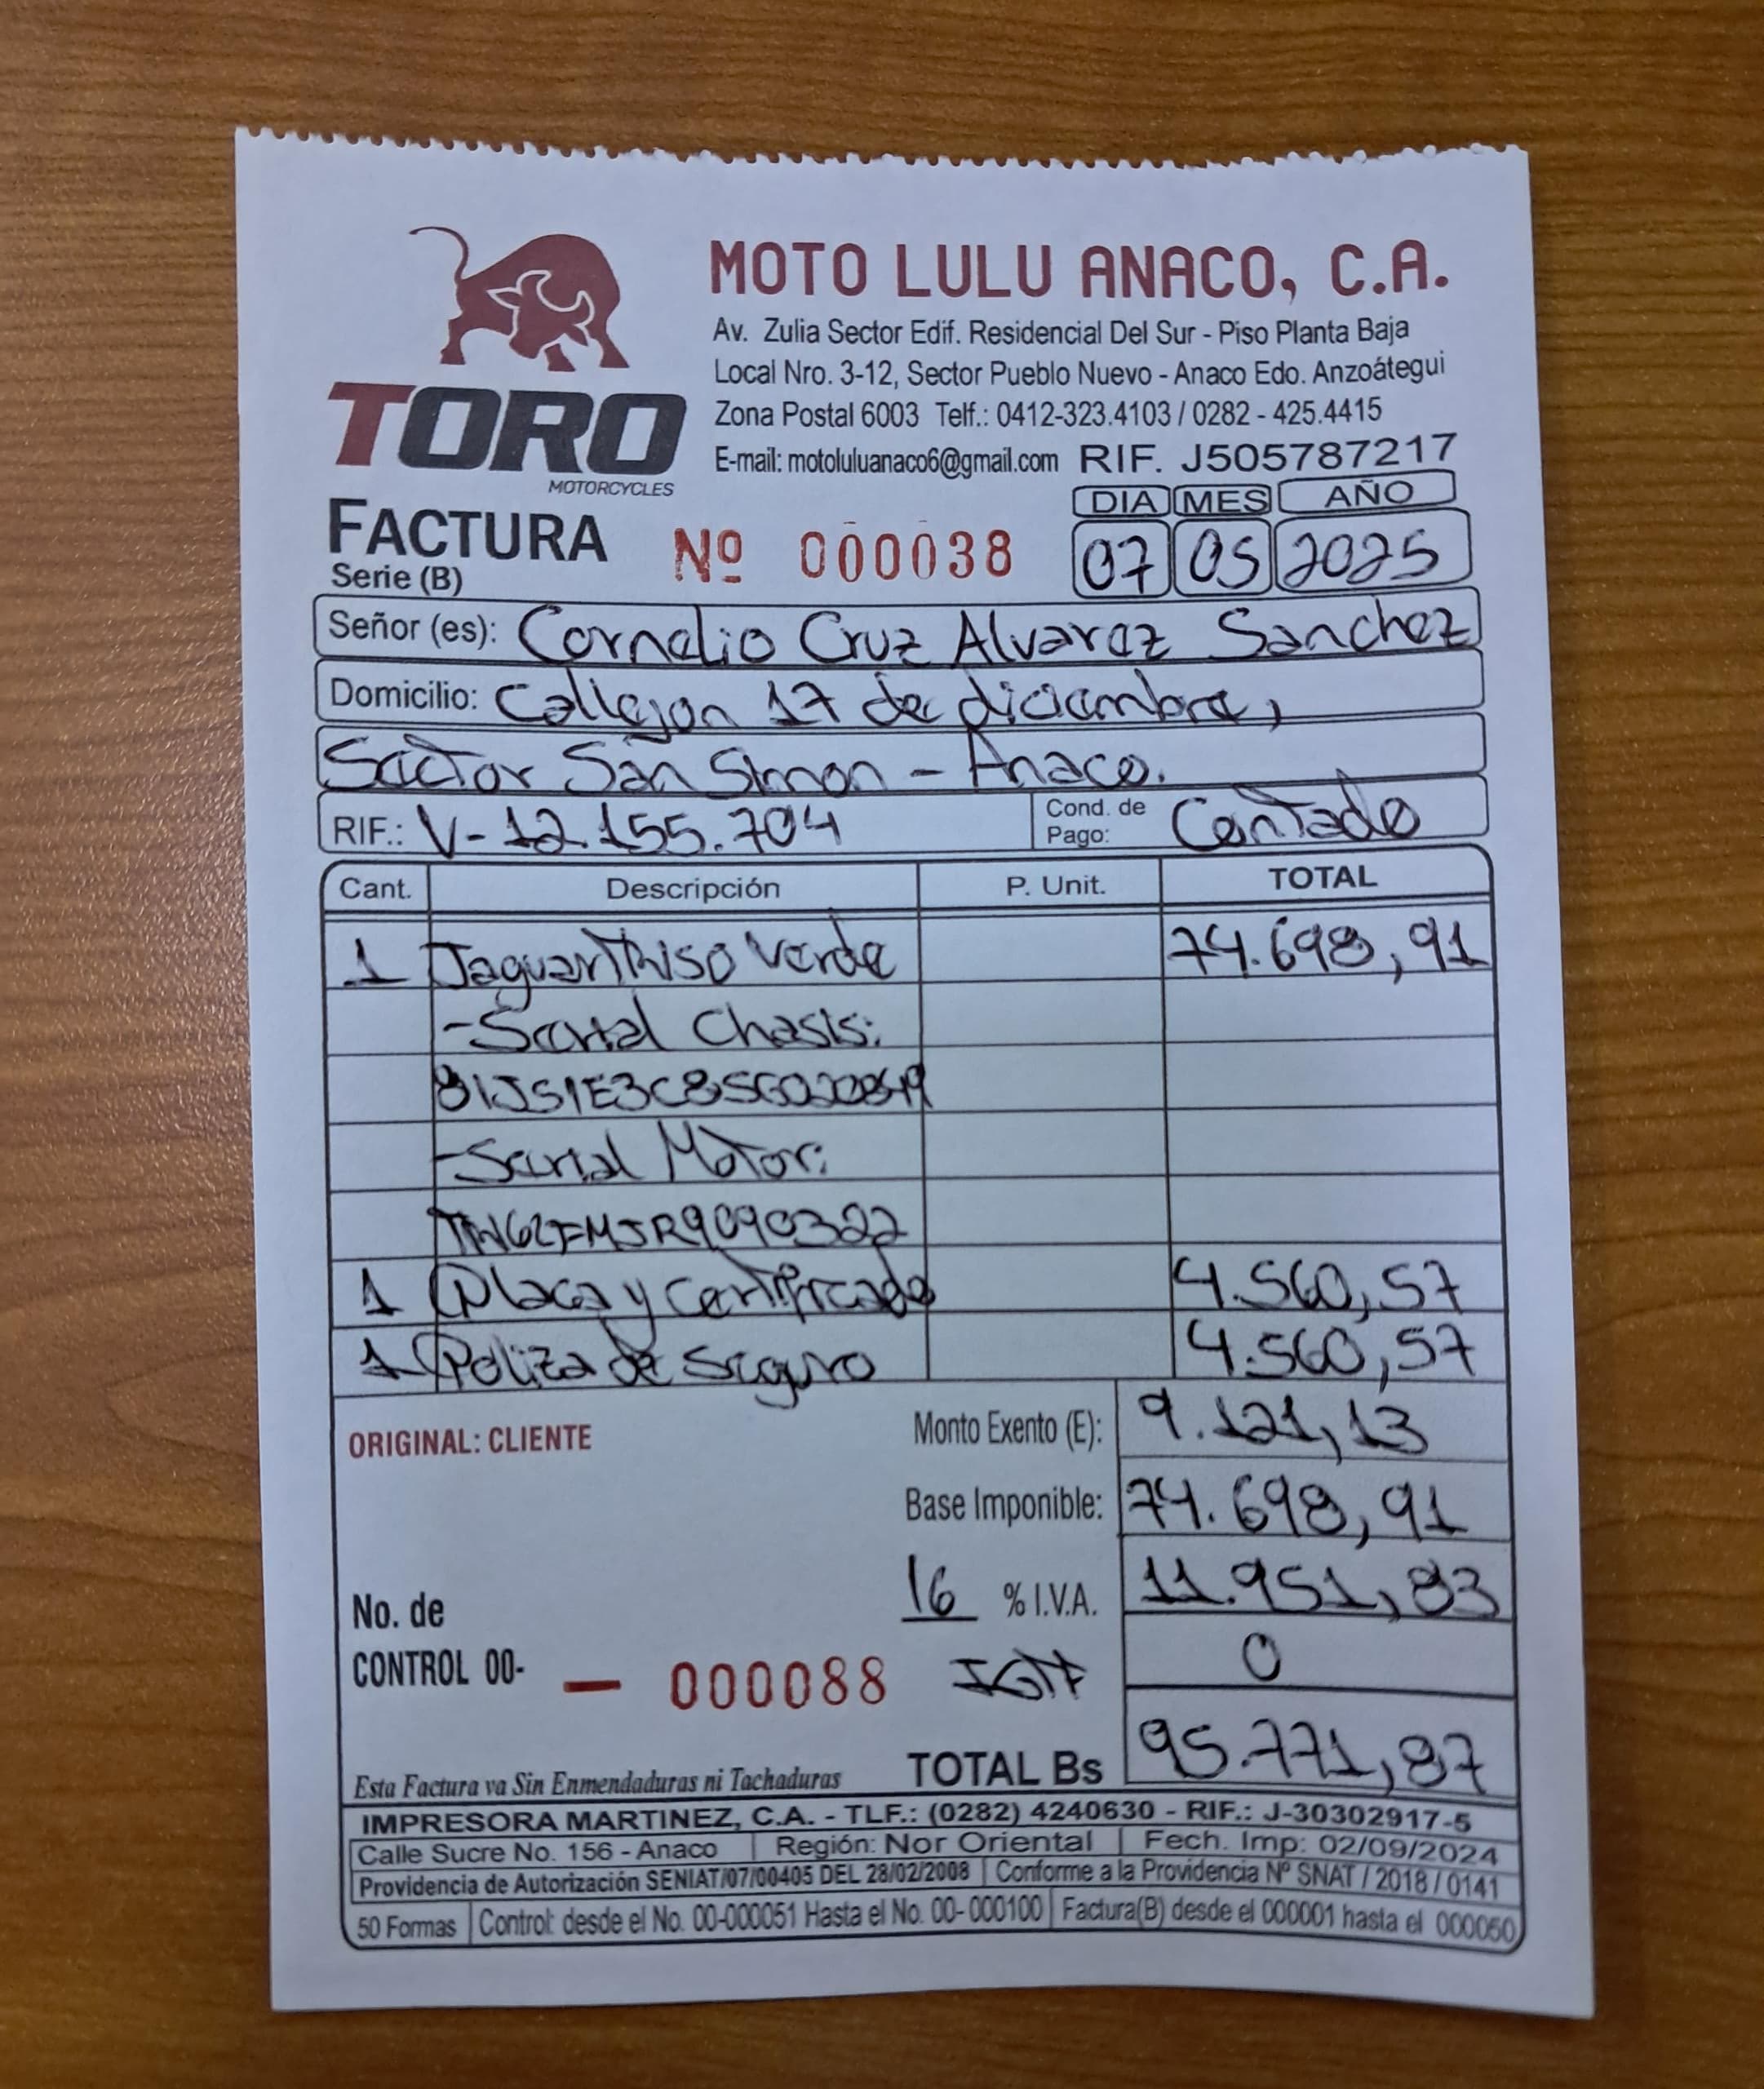 MOTO LULU ANACO, C.A.
Av. Zulia Sector Edif. Residencial Del Sur - Piso Planta Baja
Local Nro. 3-12, Sector Pueblo Nuevo - Anaco Edo. Anzoátegui
Zona Postal 6003 Telf.: 0412-323.4103 / 0282 - 425.4415
E-mail: motoluluanaco6@gmail.com RIF. J505787217
TORO
MOTORCYCLES
DIA MES AÑO
FACTURA Nº 000038 07 05 2025
Serie (B)
Señor (es): Cornelio Cruz Alvarez Sanchez
Domicilio: Callejon 17 de diciembre,
Sector San Simon - Anaco.
RIF.: V-12.155.704 Cond. de Pago: Contado
Cant. Descripción P. Unit. TOTAL
1 Jaguar Verde 74.698,91
-Serial Chasis:
-Serial Motor:
1 Placa y Certificado 4.560,57
1 Poliza de Seguro 4.560,57
ORIGINAL: CLIENTE Monto Exento (E): 9.121,13
Base Imponible: 74.698,91
16 % I.V.A. 11.951,83
No. de
CONTROL 00- — 000088 IGTF 0
Esta Factura va Sin Enmendaduras ni Tachaduras TOTAL Bs 95.771,87
IMPRESORA MARTINEZ, C.A. - TLF.: (0282) 4240630 - RIF.: J-30302917-5
Calle Sucre No. 156 - Anaco Región: Nor Oriental Fech. Imp: 02/09/2024
Providencia de Autorización SENIAT/07/00405 DEL 28/02/2008 Conforme a la Providencia Nº SNAT / 2018 / 0141
50 Formas Control: desde el No. 00-000051 Hasta el No. 00- 000100 Factura(B) desde el 000001 hasta el 000050